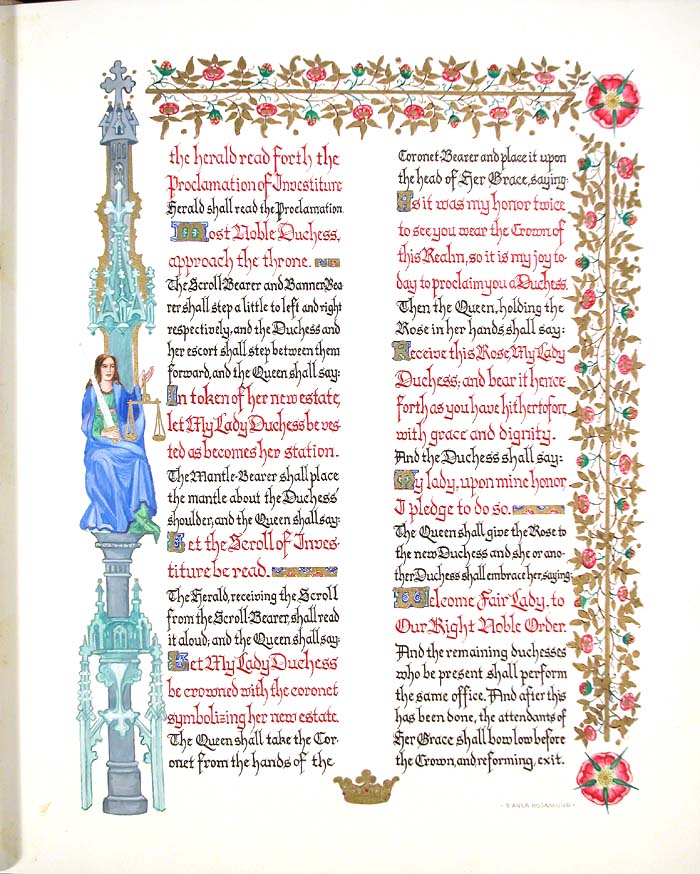 the herald read forth the
Proclamation of Investiture
Herald shall read the Proclamation.
Most Noble Duchess,
approach the throne.
The Scroll Bearer and Banner Bea
rer shall step a little to left and right
respectively, and the Duchess and
her escort shall step between them
forward, and the Queen shall say:
In token of her new estate,
let My Lady Duchess be ves
ted as becomes her station.
The Mantle-Bearer shall place
the mantle about the Duchess'
shoulder, and the Queen shall say:
Let the Scroll of Inves-
titure be read.
The Herald, receiving the Scroll
from the Scroll-Bearer, shall read
it aloud; and the Queen shall say:
Let My Lady Duchess
be crowned with the coronet
symbolizing her new estate.
The Queen shall take the Cor-
onet from the hands of the
Coronet-Bearer and place it upon
the head of Her Grace, saying:
As it was my honor twice
to see you wear the Crown of
this Realm, so it is my joy to-
day to proclaim you a Duchess.
Then the Queen, holding the
Rose in her hands shall say:
Receive this Rose, My Lady
Duchess; and bear it hence-
forth as you have hithertofore
with grace and dignity.
And the Duchess shall say:
My lady, upon mine honor
I pledge to do so.
The Queen shall give the Rose to
the new Duchess and she or ano-
ther Duchess shall embrace her, saying:
Welcome Fair Lady, to
Our Right Noble Order.
And the remaining duchesses
who be present shall perform
the same office. And after this
has been done, the attendants of
Her Grace shall bow low before
the Crown, and reforming, exit.
· BIANCA ROSAMUND ·